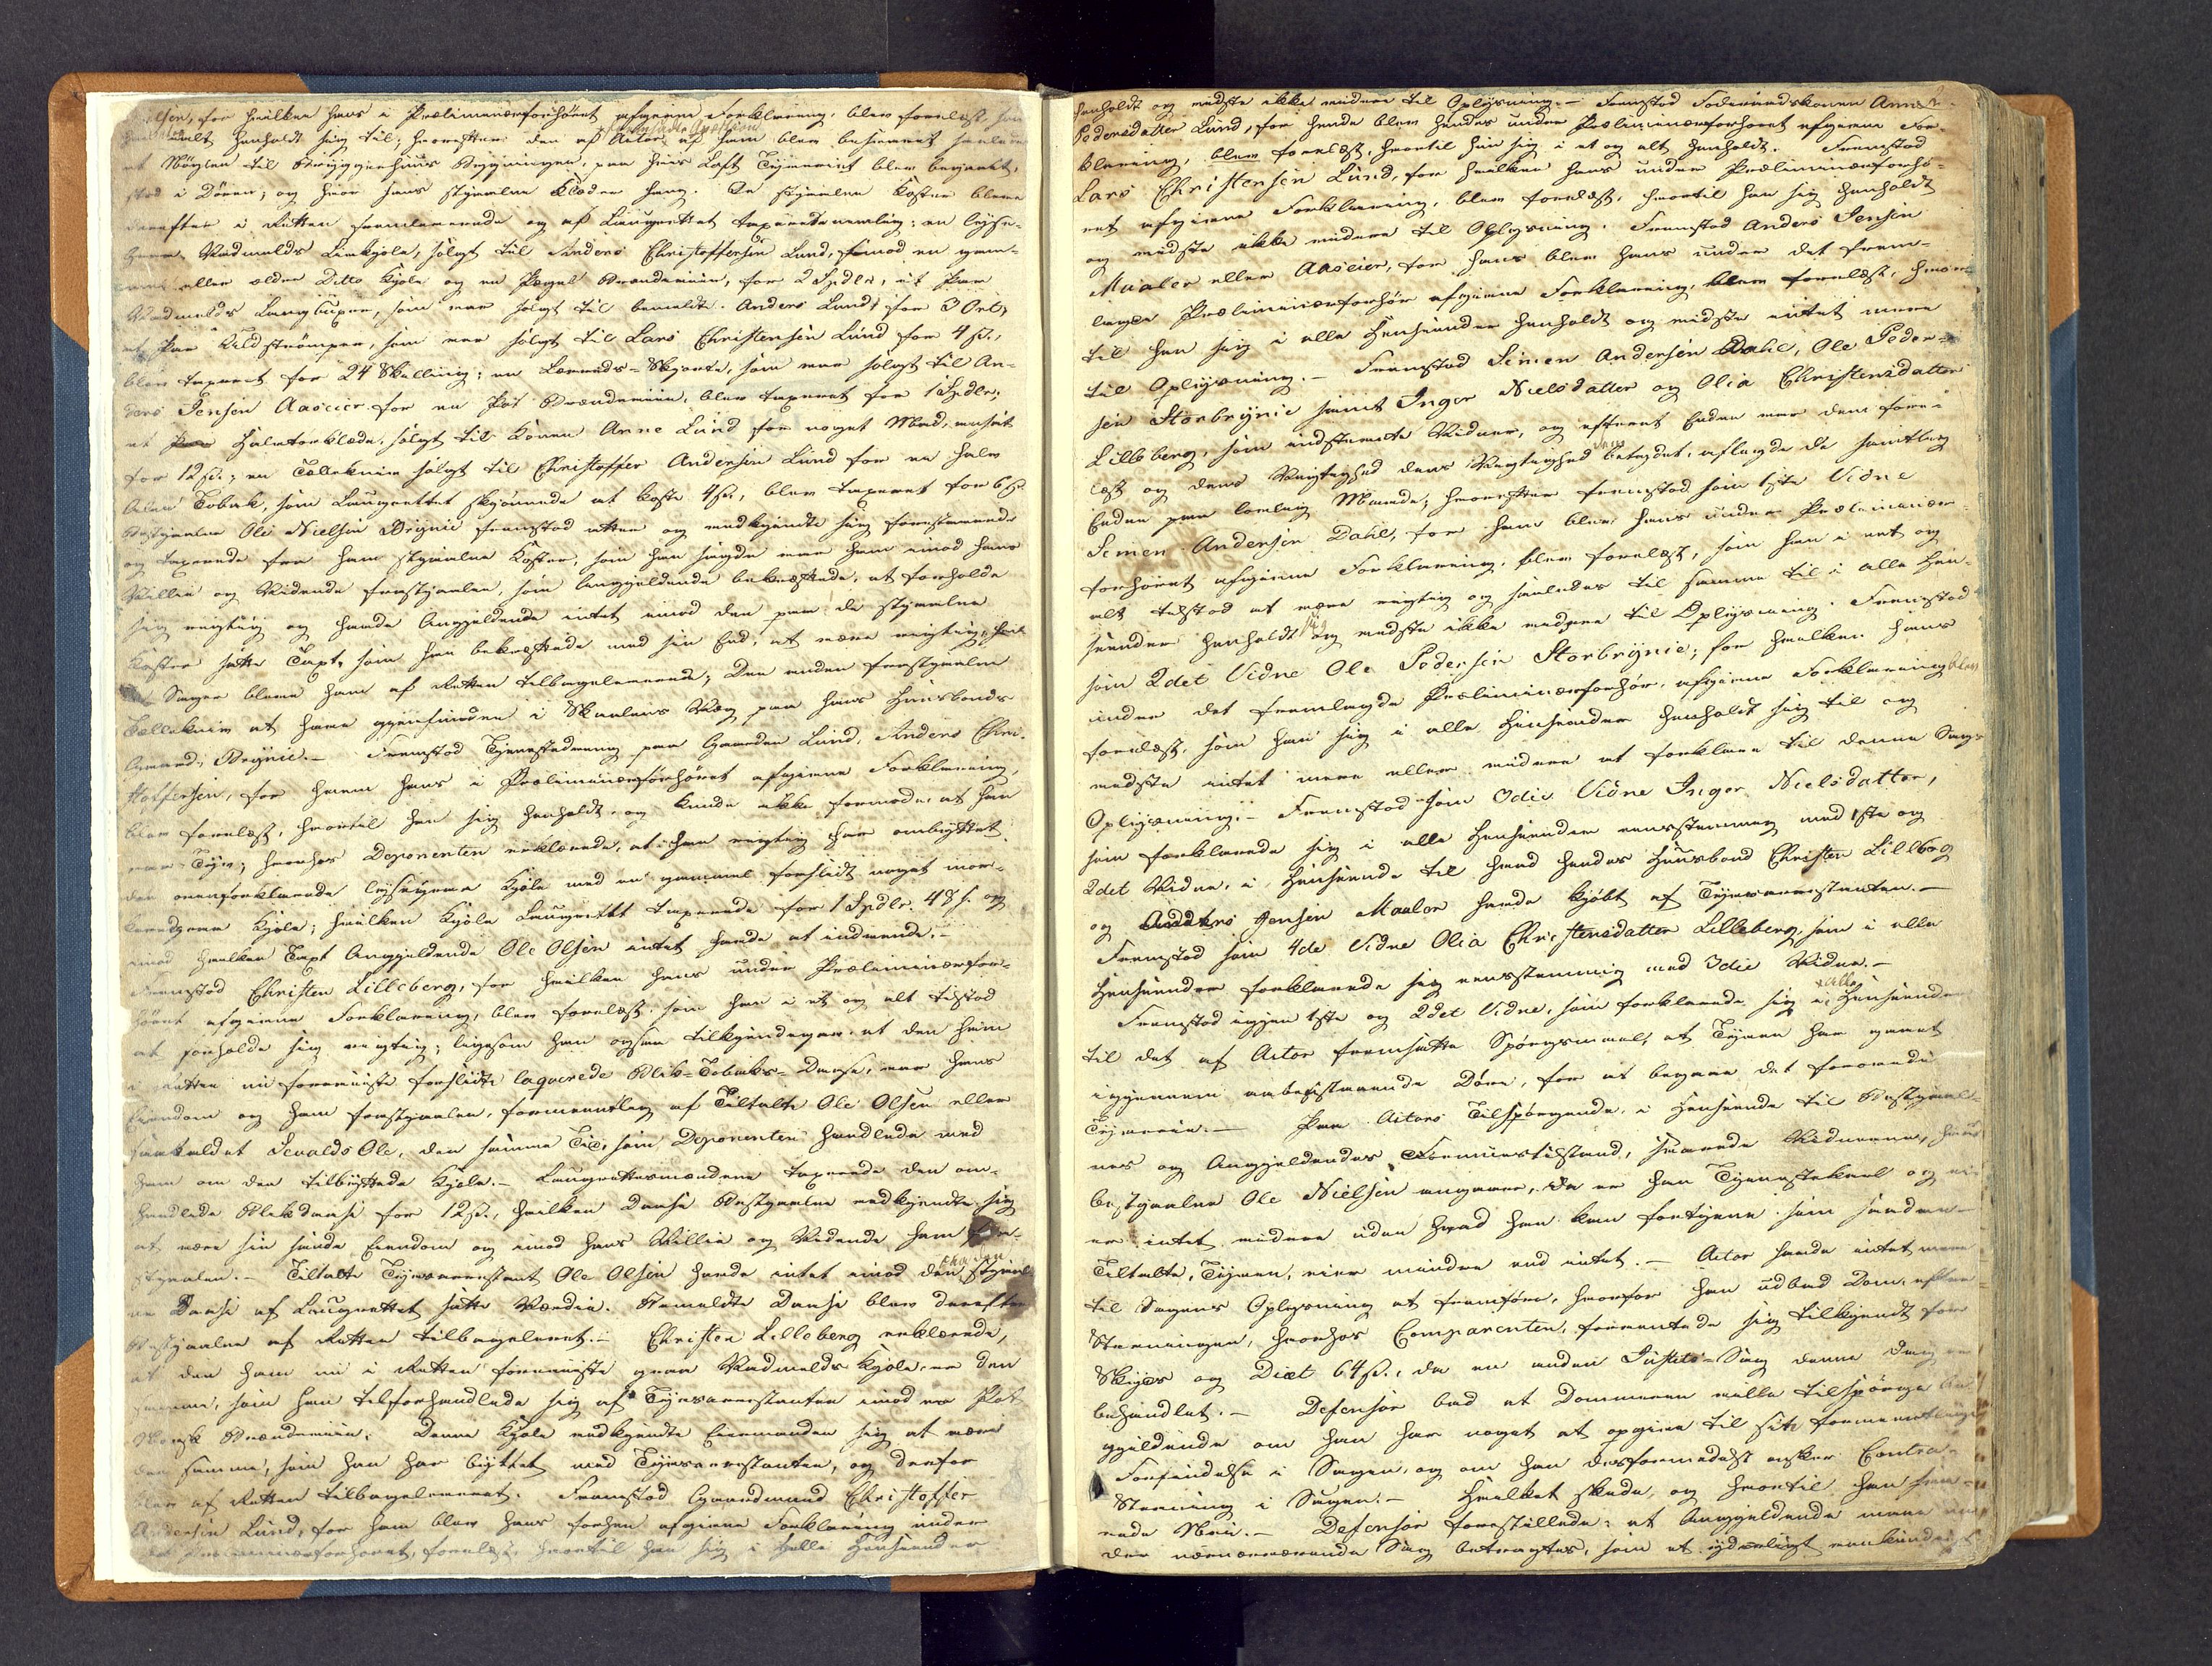 for hvilken hans i Præliminairforhöret afgivne Forklaring, blev forelæst, som
alt henholdt sig til; hvorefter den af Actor af ham blev besvaret saaledes
at Nöglen til Bryggerhuus Bygningen, paa hvis Loft Tyveriet blev begaaet,
stod i Dören; og hvor hans stjaalne Klæder hang. De stjaalne Koster bleve
derefter i Retten fremleverede og af Laugrettet taxerede nemlig: en lyse-
Vadmels Livkjole, solgt til Anders Christoffersen Lund, imod en gam-
mel eller ældre Ditto Kjole og en Pægel Brændeviin, for 2 Spdlr, et Par
Vadmels Langbuxer, som var solgt til bemeldte Anders Lund for 3 Ort,
et Par Uldströmper, som var solgt til Lars Christensen Lund for 4 ß.,
blev taxeret for 24 Skilling; en Lærreds-Skjorte, som var solgt til An-
ders Jensen Aaseier for en Pot Brændeviin, blev taxeret for 1 Spdlr;
et Halstörklæde, solgt til Konen Anne Lund for noget Mad, ansat
for 12 ß.; en Tollekniv solgt til Christoffer Andersen Lund for en halv
Alen Tobak, som Laugrettet skjönnede at koste 4 ß., blev taxeret for 6 ß.
Bestjaalne Ole Nielsen Brynie fremstod atter og vedkjendte sig forestaaende
og taxerede fra ham stjaalne Koster, som han sagde var ham imod hans
Villie og Vidende frastjaalen, som Angjeldende bekræftede, at forholde
sig rigtig og havde Angjeldende intet imod den paa de stjaalne
Koster satte Taxt, som han bekræftede med sin Eed, at være rigtig,
Sager bleve ham af Retten tilbageleverede; Den anden frastjaalne
Tollekniv at have gjenfunden i Skaalens Væg paa hans Huusbonds
Gaard, Brynie. – Fremstod Tjenestedreng paa Gaarden Lund, Anders Chri-
stoffersen, for hvem hans i Præliminairforhöret afgivne Forklaring,
blev forelæst, hvortil han sig henholdt, og kunde ikke formode, at han
var Tyv; hvorhos Deponenten erklærede, at han rigtig har ombyttet
den ovenforklarede lysegrönne Kjole med en gammel forslidt noget mör-
kere grön Kjole; hvilken Kjole Laugrettet taxerede for 1 Spdlr. 48 ß. og
imod hvilken Taxt Angjeldende Ole Olsen intet havde at indvende. –
Fremstod Christen Lilleberg, for hvilken hans under Præliminairfor-
höret afgivne Forklaring, blev forelæst, som han i et og alt tilstod
at forholde sig rigtig; ligesom han ogsaa tilkjendegav, at den ham
i Retten nu foreviiste forslidte laquerede Blik-Tobaks-Daase, var hans
Eiendom og ham frastjaalen, formeentlig af Tiltalte Ole Olsen eller
saakaldet Sevalds Ole, den samme Tid, som Deponenten handlede med
ham om den tilbyttede Kjole. – Laugrettesmændene taxerede den om-
handlede Blikdaase for 12 ß., hvilken Daase Bestjaalne vedkjendte sig
at være sin sande Eiendom og imod hans Villie og Vidende ham fra-
stjaalen. – Tiltalte Tyvsarrestant Ole Olsen havde intet imod den stjaal-
ne Daase af Laugrettet satte Værdie. Bemeldte Daase blev derefter
Bestjaalne af Retten tilbageleveret. – Christen Lilleberg erklærede,
at den ham nu i Retten foreviiste graae Vadmels Kjole, er den
samme, som han tilforhandlede sig af Tyvsarrestanten imod en Pot
Norsk Brændeviin. Denne Kjole vedkjendte Eiermanden sig at være
den samme, som han har byttet med Tyvsarrestanten, og derfor
blev af Retten tilbageleveret. Fremstod Gaardmand Christoffer
Andersen Lund, for ham blev hans forhen afgivne Forklaring under
Præliminairforhöret, forelæst, hvortil han sig i alle Henseender
henholdt og vidste ikke videre til Oplysning. – Fremstod Föderaadskonen Anne
Pedersdatter Lund, for hende blev hendes under Præliminairforhöret afgivne For-
klaring, blev forelæst, hvortil hun sig i et og alt henholdt. Fremstod
Lars Christensen Lund, for hvilken hans under Præliminairforhö-
ret afgivne Forklaring, blev forelæst, hvortil han sig henholdt
og vidste ikke videre til Oplysning. Fremstod Anders Jensen
Maaler eller Aaseier, for hans blev hans under det frem-
lagde Præliminairforhör afgivne Forklaring, blev forelæst, hvor-
til han sig i alle Henseender henholdt og vidste intet mere
til Oplysning. – Fremstod Simen Andersen Dahl, Ole Peder-
sen Storbrynie samt Inger Nielsdatter og Olia Christensdatter
Lilleberg, som indstevnte Vidner, og efterat Eeden var dem fore-
læst og dens Vigtighed dens Vigtighed betydet, aflagde de samtlig
Eeden paa lovlig Maade; hvorefter fremstod som 1ste Vidne
Simen Andersen Dahl, for ham blev hans under Præliminair-
forhöret afgivne Forklaring, blev forelæst, som han i eet og
alt tilstod at være rigtig og saaledes til samme til i alle Hen-
seender henholdt sig og vidste ikke videre til Oplysning. Fremstod
som 2det Vidne Ole Pedersen Storbrynie; for hvilken hans
under det fremlagde Præliminairforhör, afgivne Forklaring blev
forelæst, som han sig i alle Henseender henholdt sig til og
vidste intet mere eller videre at forklare til denne Sags
Oplysning. – Fremstod som 3die Vidne Inger Nielsdatter,
som forklarede sig i alle Henseender eensstemmig med 1ste og
2det Vidne, i Henseende til hvad hendes Huusbond Christen Lilleberg
og Anders Jensen Maaler havde kjöbt af Tyvsarrestanten. –
Fremstod som 4de Vidne Olia Christensdatter Lilleberg, som i alle
Henseender forklarede sig eensstemmig med 3die Vidne. –
Fremstod igjen 1ste og 2det Vidne, som forklarede sig i alle Henseender
til det af Actor fremsatte Spörgsmaal, at Tyven har gaaet
igjennem aabenstaaende Döre, for at begaae det forövede
Tyverie. – Paa Actors Tilspörgende, i Henseende til Bestjaal-
nes og Angjeldendes Formuestilstand, svarede Vidnerne, hvad
bestjaalne Ole Nielsen angaaer, da er han Tjenestekarl og
er intet videre uden hvad han kan fortjene som saadan –
Tiltalte, Tyven, eier mindre end intet. – Actor havde intet mere
til Sagens Oplysning at fremföre, hvorfor han udbad Dom, efter
Stevningen, hvorhos Comparenten, formeentede sig tilkjendt for
Skyds og Diæt 64 ß., da en anden Justits-Sag denne Dag er
behandlet. – Defensor bad at Dommeren vilde tilspörge An-
gjeldende om han har noget at opgive til sit formeentlige
Forsvar i Sagen, og om han desformedelst önsker Contra-
Stevning i Sagen. – Hvilket skede, og hvortil han sva-
rede Nei. – Defensor forestillede: at Angjeldende maae ved
den nærværende Sag betragtes, som et ydmeligt vankundigt